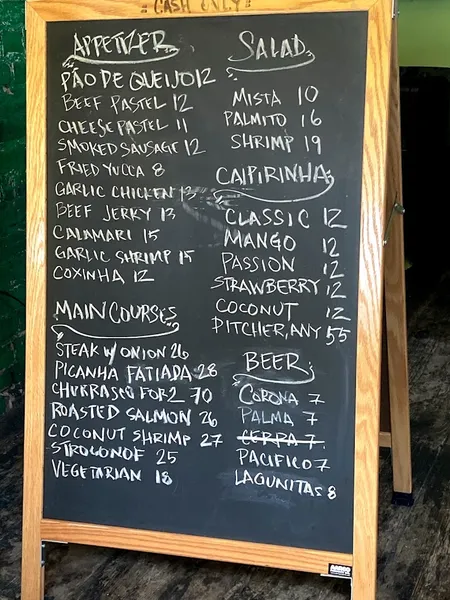 "CASH ONLY"
APPETIZER
PÃO DE QUEIJO 12
BEEF PASTEL 12
CHEESE PASTEL 11
SMOKED SAUSAGE 12
FRIED YUCCA 8
GARLIC CHICKEN 13
BEEF JERKY 13
CALAMARI 15
GARLIC SHRIMP 15
COXINHA 12
MAIN COURSES
STEAK W/ ONION 26
PICANHA FATIADA 28
CHURRASCO FOR 2 70
ROASTED SALMON 26
COCONUT SHRIMP 27
STROGONOF 25
VEGETARIAN 18
SALAD
MISTA 10
PALMITO 16
SHRIMP 19
CAIPIRINHA
CLASSIC 12
MANGO 12
PASSION 12
STRAWBERRY 12
COCONUT 12
PITCHER, ANY 55
BEER
CORONA 7
PALMA 7
CERPA 7
PACIFICO 7
LAGUNITAS 8